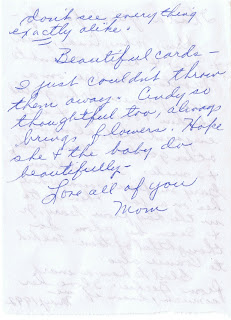 don't see everything
exactly alike.
Beautiful cards –
I just couldn't throw
them away. Cindy so
thoughtful too, always
brings flowers. Hope
she & the baby do
beautifully –
Love all of you
Mom